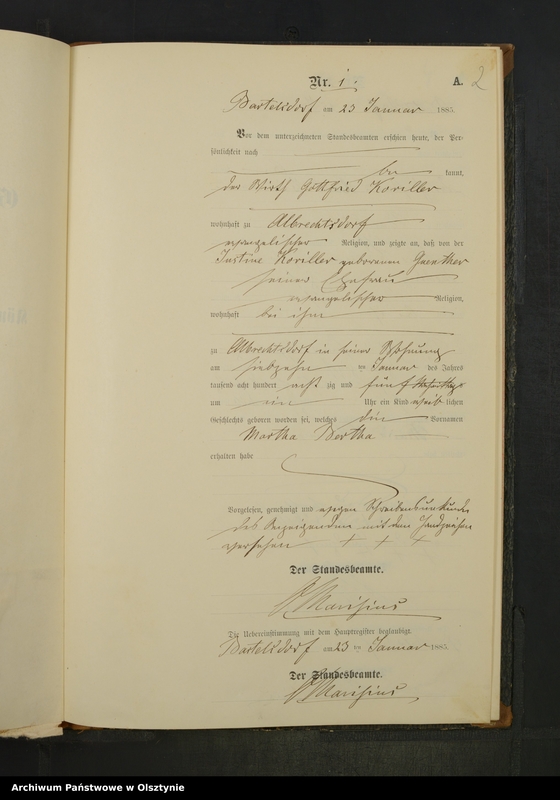 Nr. 1.
A. 2
Bartelsdorf am 23 Januar 1885
Vor dem unterzeichneten Standesbeamten erschien heute, der Per-
sönlichkeit nach
be kannt,
der Wirth Gottfried Koriller
wohnhaft zu Albrechtsdorf
evangelischer Religion, und zeigte an, daß von der
Justine Koriller geborenen Guenther
seiner Ehefrau
evangelischer Religion,
wohnhaft bei ihm
zu Albrechtsdorf in seiner Wohnung
am siebzehn ten Januar des Jahres
tausend acht hundert acht zig und fünf
um ein Uhr ein Kind weib lichen
Geschlechts geboren worden sei, welches die Vornamen
Martha Bertha
erhalten habe
Vorgelesen, genehmigt und wegen Schreibensunkunde
des Anzeigenden mit dem Handzeichen
versehen + + +
Der Standesbeamte.
Marisius
Die Uebereinstimmung mit dem Hauptregister beglaubigt.
Bartelsdorf am 23 ten Januar 1885
Der Standesbeamte.
Marisius
Archiwum Państwowe w Olsztynie